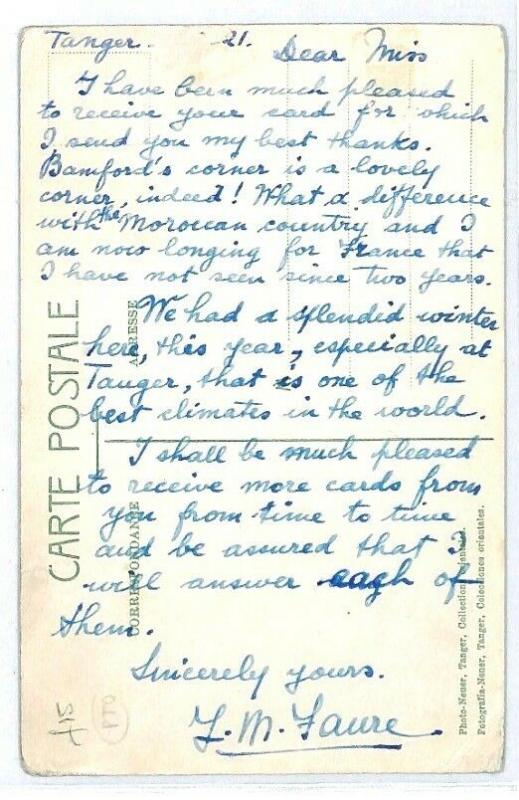 Tanger. -21. Dear Miss
I have been much pleased
to receive your card for which
I send you my best thanks.
Bamford's corner is a lovely
corner, indeed! What a difference
with the Moroccan country and I
am now longing for France that
I have not seen since two years.
We had a splendid winter
here, this year, especially at
Tanger, that is one of the
best climates in the world.
I shall be much pleased
to receive more cards from
you from time to time
and be assured that I
will answer eagh of
them.
Sincerely yours.
F. M. Faure.
CARTE POSTALE
ADRESSE
CORRESPONDANCE
Photo-Neuer, Tanger, Collections orientales.
Fotografia-Neuer, Tanger, Colecciones orientales.
£15
PTO